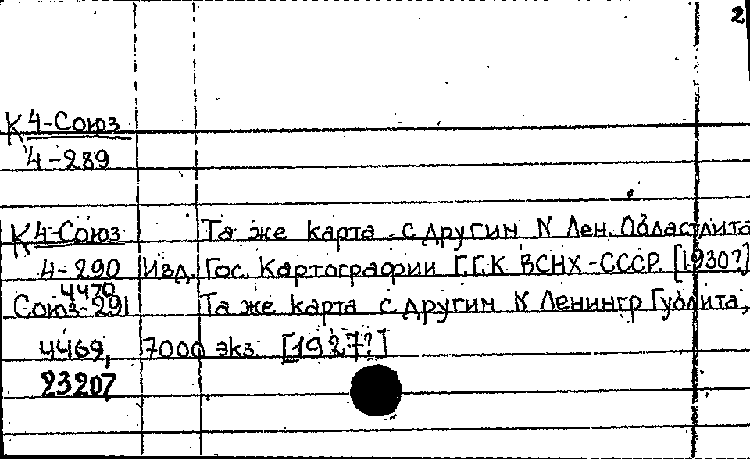 2
К 4-Союз
4-289
К 4-Союз Та же карта с другим N Лен. Областлита
4-290 Изд. Гос. Картографии Г.Г.К ВСНХ-СССР. [1930?]
4470
Союз-291 Та же карта с другим N Ленингр Гублита,
4469, 7000 экз [1927?]
23207